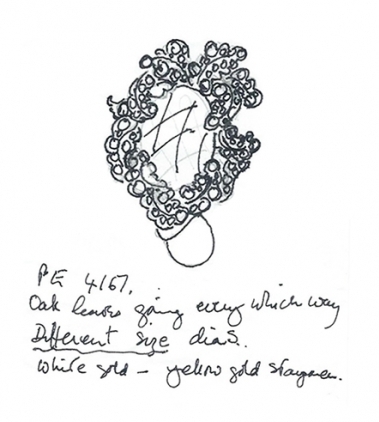 PE 4167.
Oak leaves going every which way
Different size dia's.
White gold – yellow gold